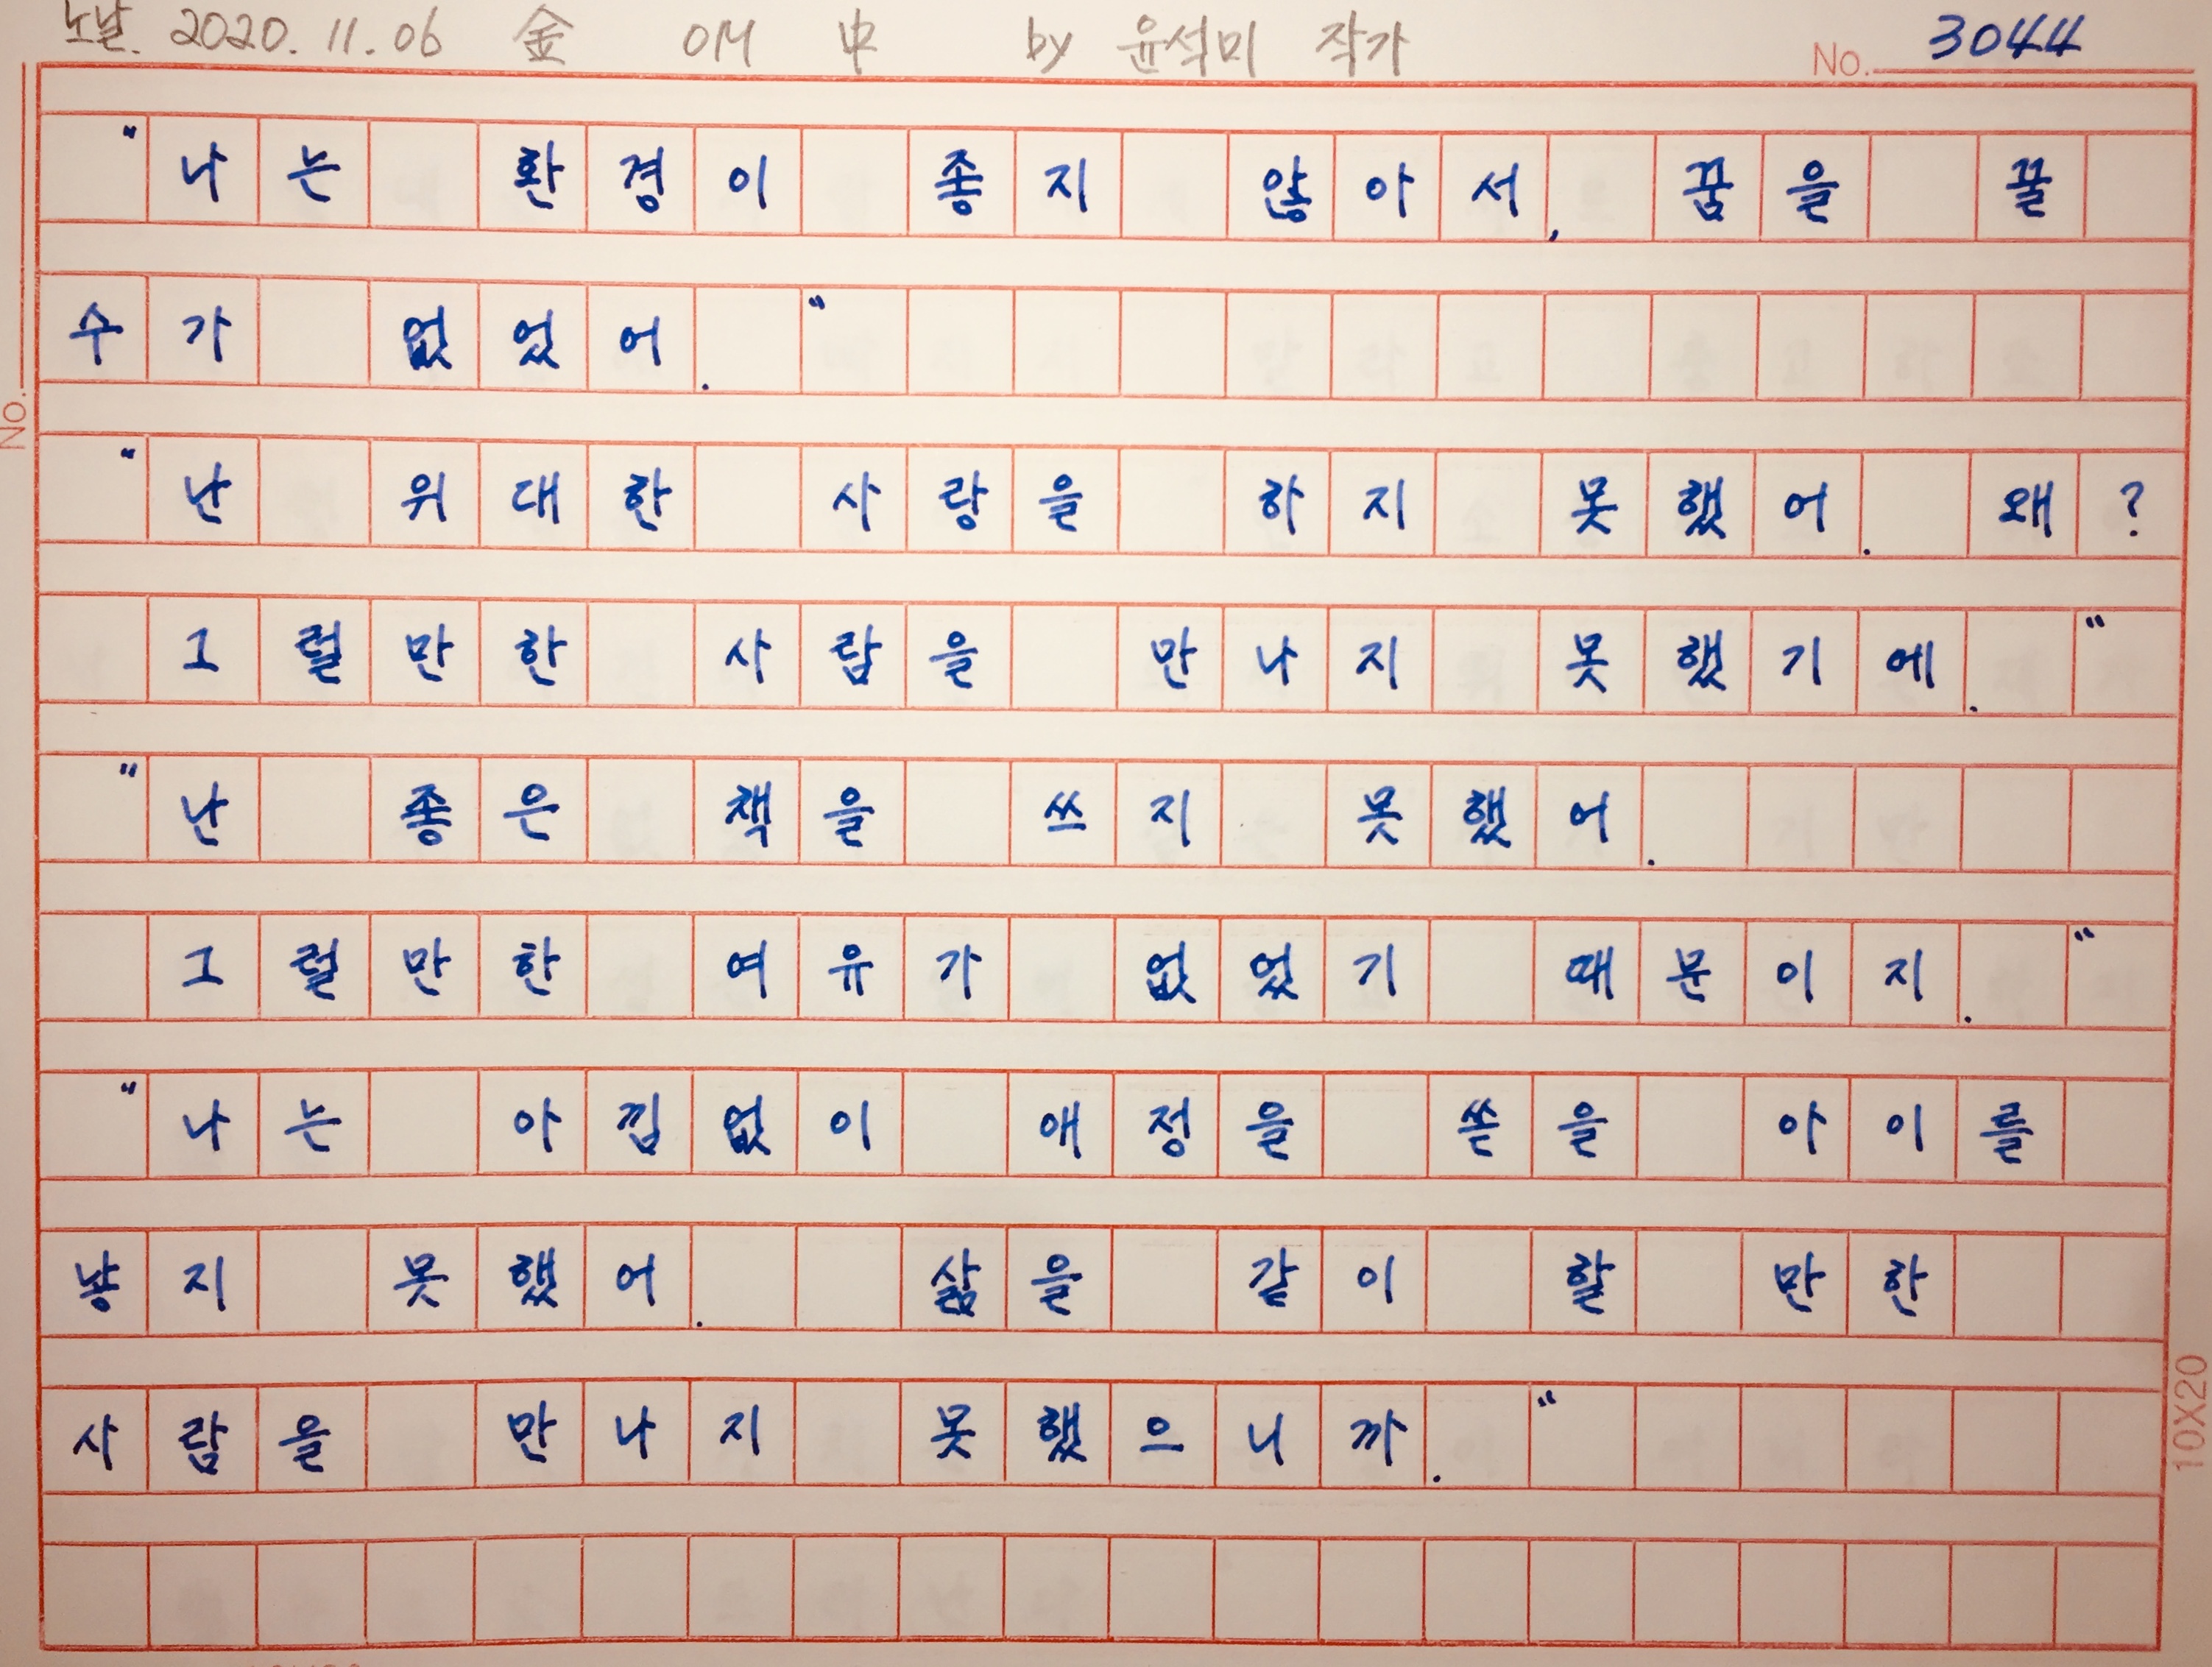 노날. 2020. 11. 06 金 OM 中 by 윤석미 작가
No. 3044
"나는 환경이 좋지 않아서, 꿈을 꿀
수가 없었어."
"난 위대한 사랑을 하지 못했어. 왜?
그럴만한 사람을 만나지 못했기에."
"난 좋은 책을 쓰지 못했어.
그럴만한 여유가 없었기 때문이지."
"나는 아낌없이 애정을 쏟을 아이를
낳지 못했어. 삶을 같이 할 만한
사람을 만나지 못했으니까."
No.
10X20